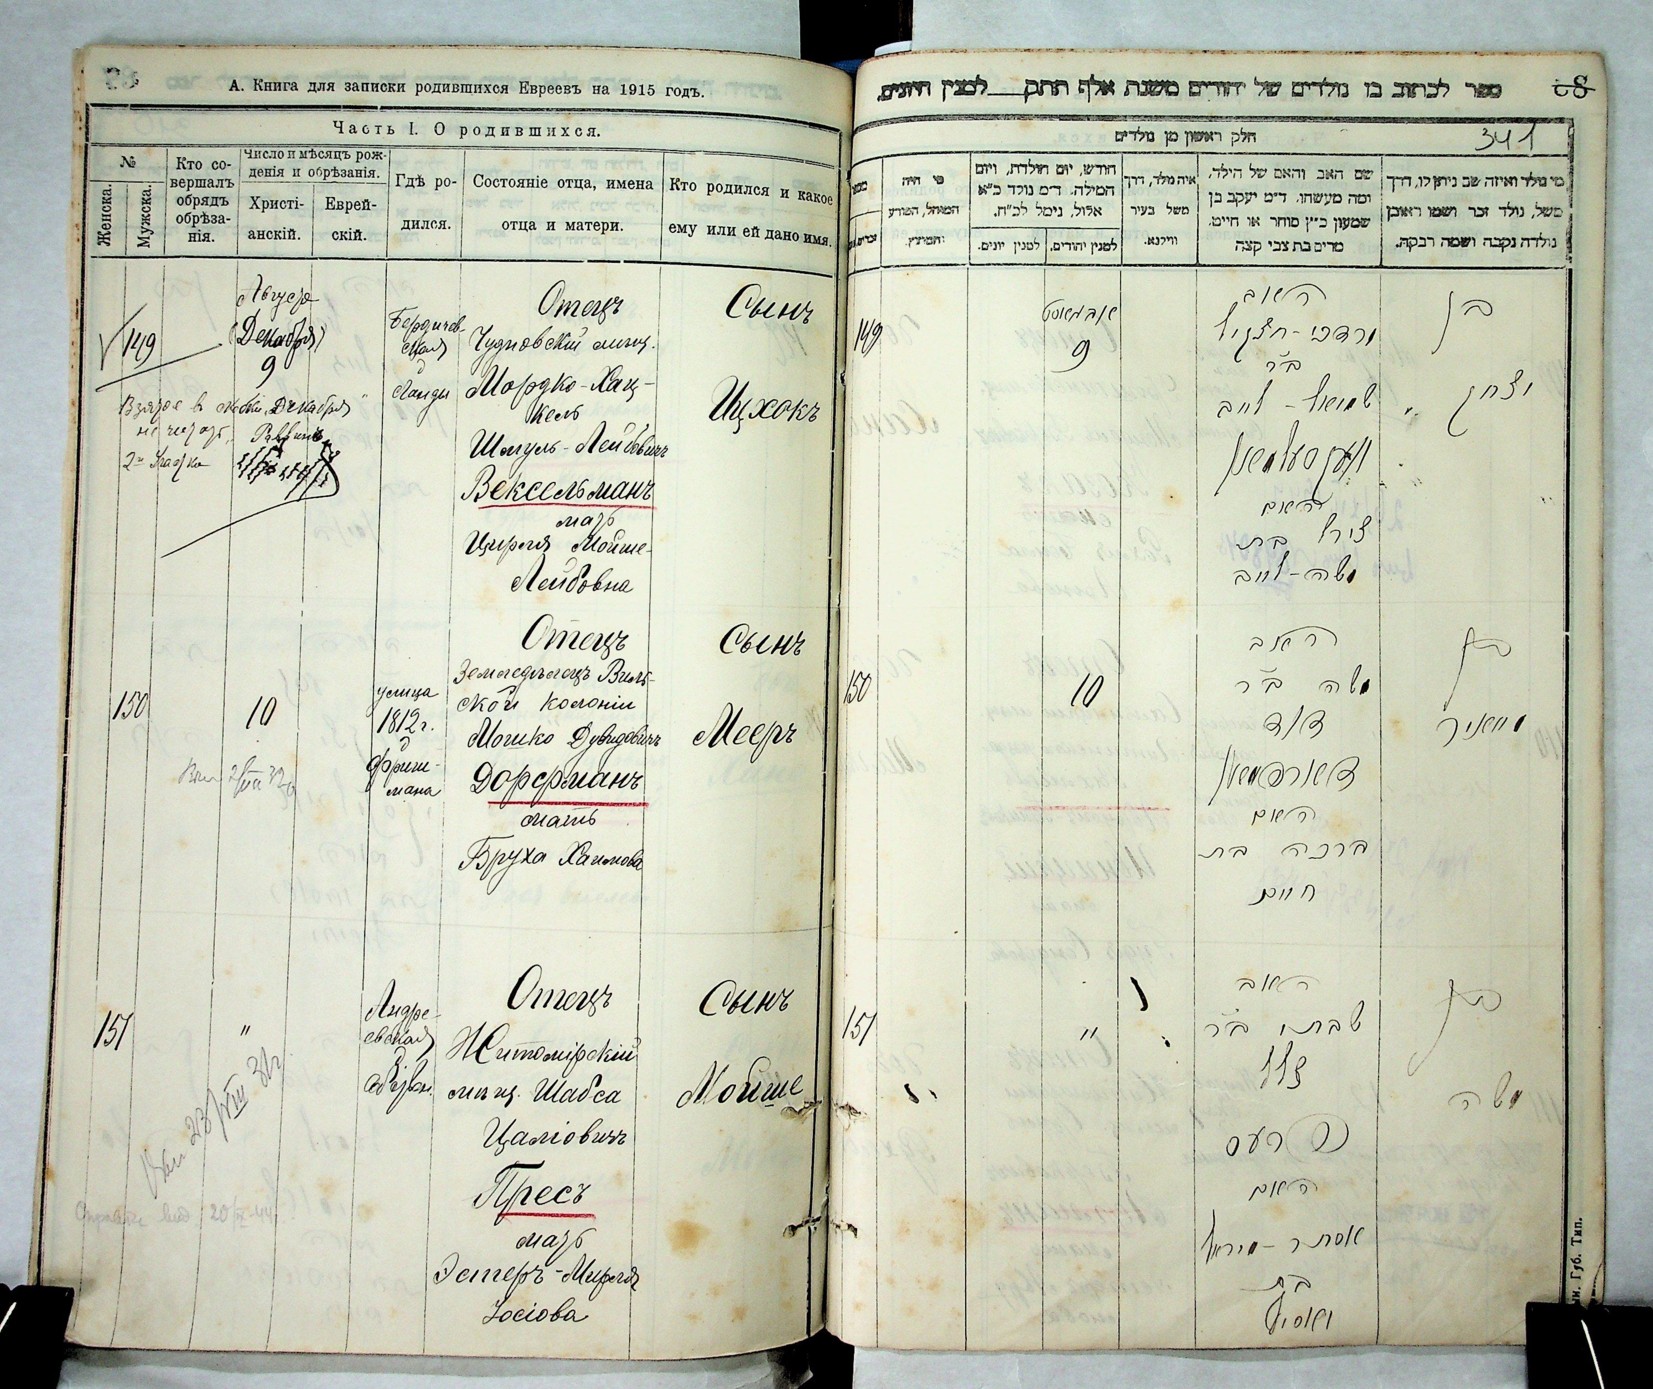 А. Книга для записки родившихся Евреевъ на 1915 годъ.
Часть I. О родившихся.
№
Женска.
Мужска.
Кто со-
вершалъ
обрядъ
обрѣза-
нія.
Число и мѣсяцъ рож-
денія и обрѣзанія.
Христі-
анскій.
Еврей-
скій.
Гдѣ ро-
дился.
Состояніе отца, имена
отца и матери.
Кто родился и какое
ему или ей дано имя.
149
Августа
(Декабря)
9
Бердичев-
ская
д
Ланды
Отецъ
Чудновскій мѣщ.
Мордко-Хац-
кель
Шмуль-Лейбовичъ
Вексельманъ
мать
Цирля Мойше-
Лейбовна
Сынъ
Ицхокъ
Взятое в скобки „Декабря"
не читать. Раввинъ
150
10
улица
1812г.
д
Фриш-
мана
Отецъ
Земледѣлецъ Виль-
ской колоніи
Мошко Дувидовичъ
Дорфманъ
мать
Бруха Хаимова
Сынъ
Мееръ
151
"
Андре-
евская
Отецъ
Житомірскій
мѣщ. Шабса
Цаліовичъ
Пресъ
мать
Эстеръ-Мирля
Іосіова
Сынъ
Мойше
23/VIII 31г
ספר לכתוב בו נולדים של יהודים משנת אלף תתק למנין היונים.
68
341
חלק ראשון מן נולדים
מי נולד ואיזה שם ניתן לו, דרך
משל, נולד זכר ושמו ראובן
נולדה נקבה ושמה רבקה.
שם האב והאם של הילד,
ומה מעשהו. ד״מ יעקב בן
שמעון כ״ץ סוחר או חייט.
מרים בת צבי קצה
איה נולד, דרך
משל בעיר
ווילנא.
חודש, יום הולדת, ויום
המילה. ד״מ נולד כ״א
אלול, נימל לכ״ח.
למנין יהודים.
למנין יונים.
מי היה
המוהל, הפורע
והמוצץ.
149
אבגוסט
9
האב
מרדכי-חצקיל
ב״ר
שמואל-לייב
וועקסעלמאן
האם
צירל בת
משה-לייב
בן
יצחק
150
10
האב
משה ב״ר
דוד
דארפמאן
האם
ברכה בת
חיים
בן
מאיר
151
"
האב
שבתי ב״ר
צלל
פרעס
האם
אסתר-מירל
בת
יאסיל
בן
משה
Губ. Тип.